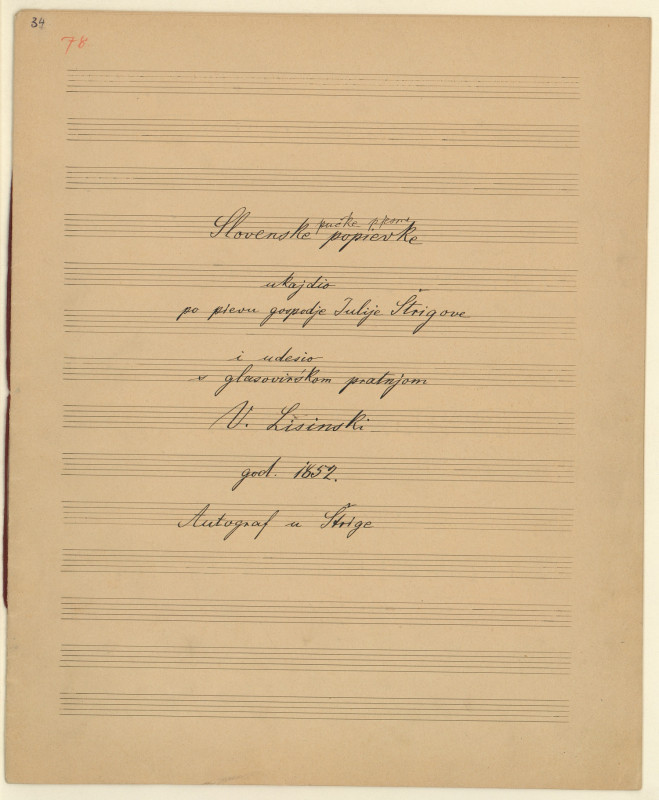 34
78.
pučke pjesme
Slovenske popievke
ukajdio
po pievu gospodje Julije Štrigove
i udesio
s glasovirskom pratnjom
V. Lisinski
god. 1852.
Autograf u Štrige